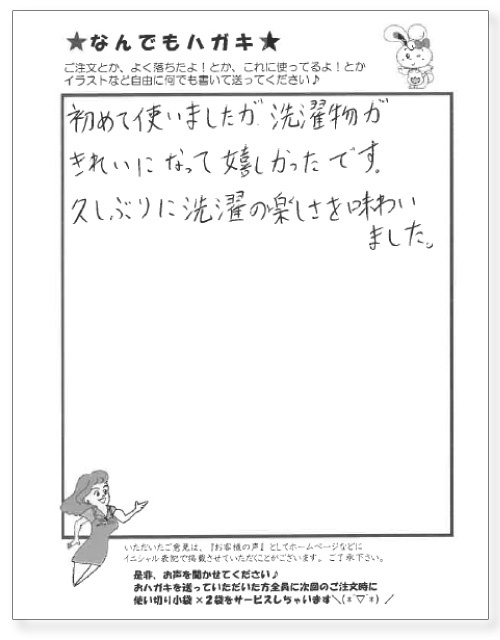 ★なんでもハガキ★
ご注文とか、よく落ちたよ！とか、これに使ってるよ！とか
イラストなど自由に何でも書いて送ってください♪
初めて使いましたが、洗濯物が
きれいになって嬉しかったです。
久しぶりに洗濯の楽しさを味わい
ました。
いただいたご意見は、『お客様の声』としてホームページなどに
イニシャル表記で掲載させていただくことがございます。ご了承下さい。
是非、お声を聞かせてください♪
おハガキを送っていただいた方全員に次回のご注文時に
使い切り小袋×2袋をサービスしちゃいます＼(*´▽`*)／